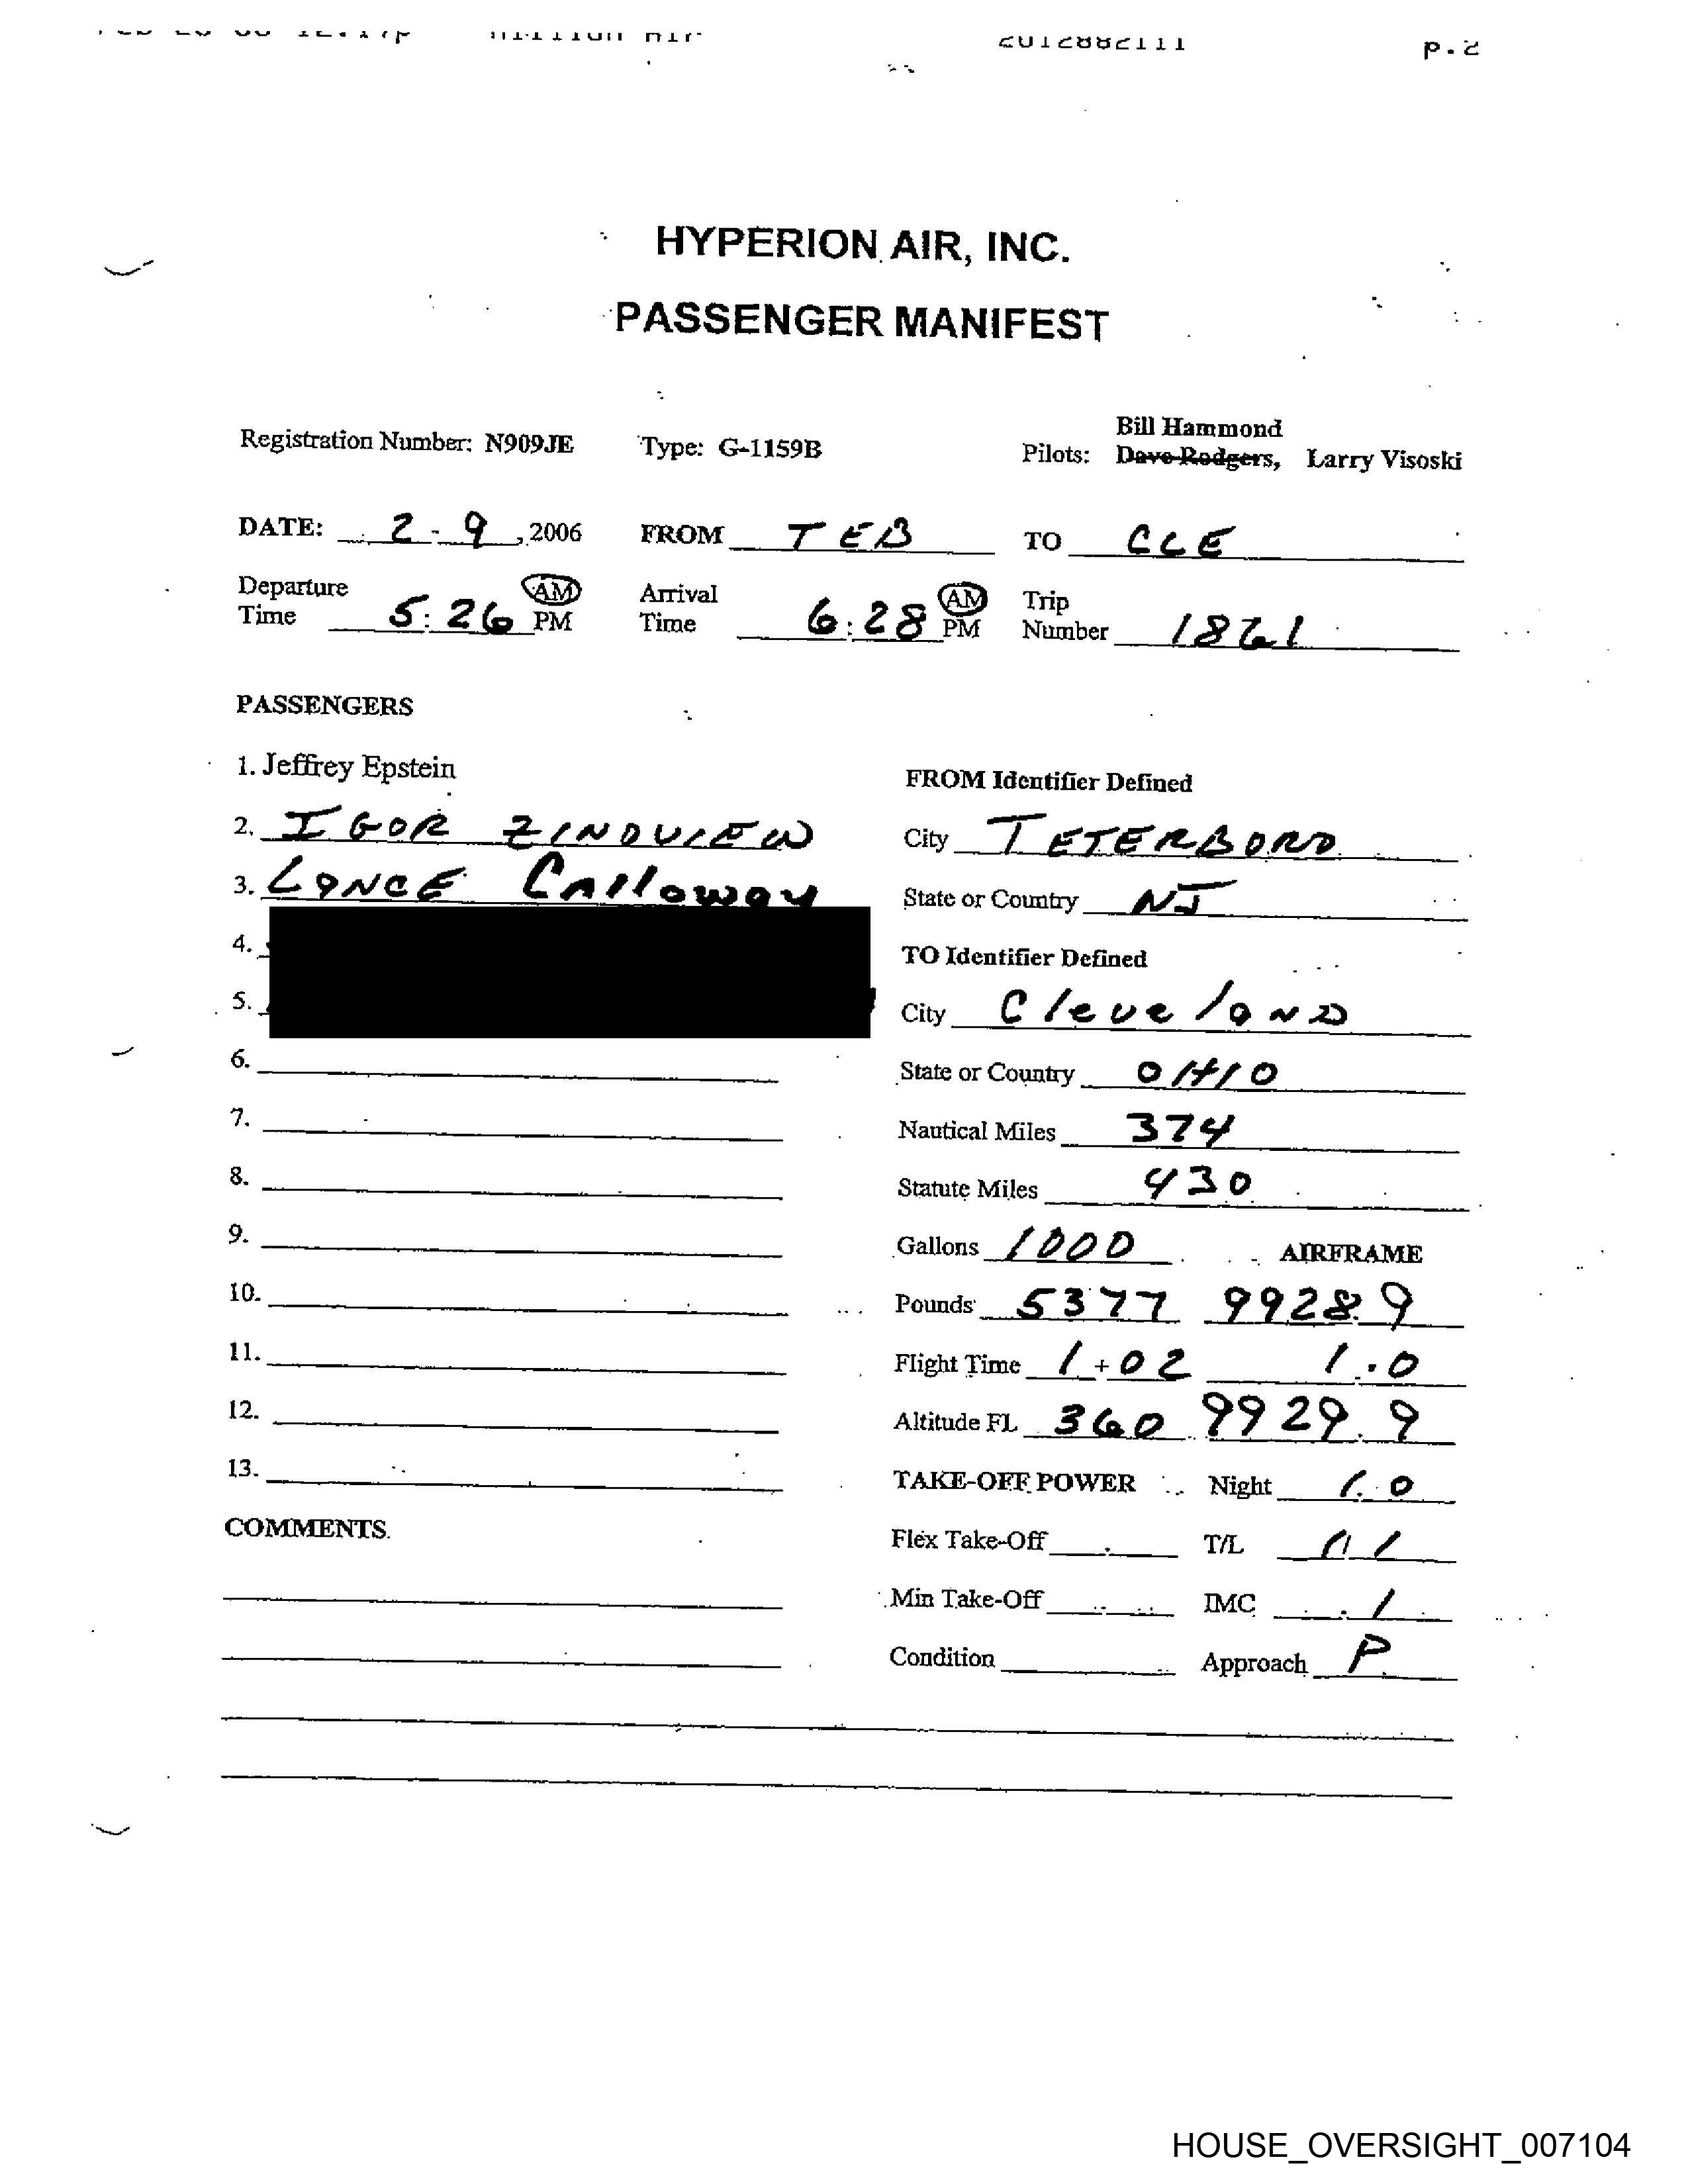 2012882111 p.2
HYPERION AIR, INC.
PASSENGER MANIFEST
Bill Hammond
Registration Number: N909JE Type: G-1159B Pilots: Dave Rodgers, Larry Visoski
DATE: 2-9, 2006 FROM TEB TO CLE
Departure AM Arrival AM Trip
Time 5:26 PM Time 6:28 PM Number 1861
PASSENGERS
1. Jeffrey Epstein
FROM Identifier Defined
2. IGOR ZINOVIEW
City TETERBORO
3. LANCE CAlloway
State or Country NJ
4.
TO Identifier Defined
5.
City CleveLaND
6.
State or Country OHIO
7.
Nautical Miles 374
8.
Statute Miles 430
9.
Gallons 1000 AIRFRAME
10.
Pounds 5377 9928.9
11.
Flight Time 1+02 1.0
12.
Altitude FL 360 9929.9
13.
TAKE-OFF POWER Night 1.0
COMMENTS
Flex Take-Off T/L 1/1
Min Take-Off IMC .1
Condition Approach P
HOUSE_OVERSIGHT_007104